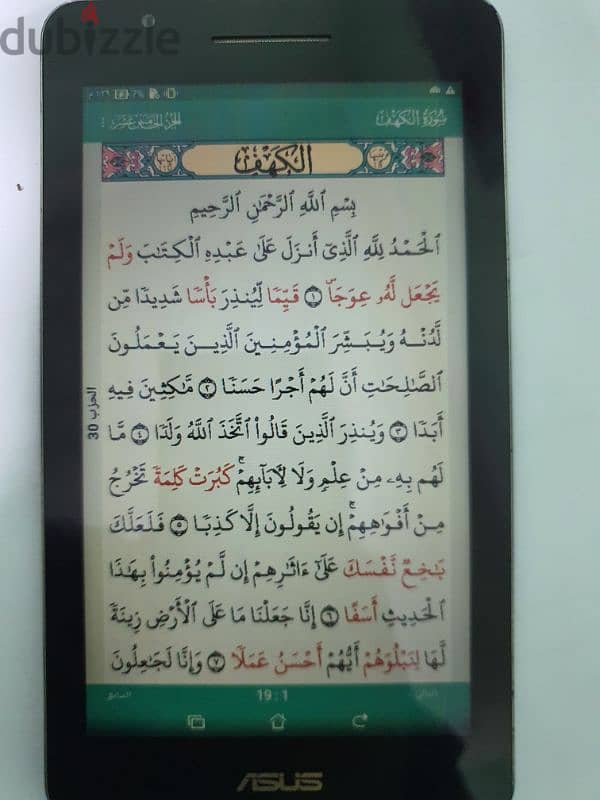 dubizzle
7%
سورة الكهف
الجزء الخامس عشر
الكهف
بِسْمِ ٱللَّهِ ٱلرَّحْمَٰنِ ٱلرَّحِيمِ
ٱلْحَمْدُ لِلَّهِ ٱلَّذِىٓ أَنزَلَ عَلَىٰ عَبْدِهِ ٱلْكِتَٰبَ وَلَمْ
يَجْعَل لَّهُۥ عِوَجَاۜ ١ قَيِّمًا لِّيُنذِرَ بَأْسًا شَدِيدًا مِّن
لَّدُنْهُ وَيُبَشِّرَ ٱلْمُؤْمِنِينَ ٱلَّذِينَ يَعْمَلُونَ
ٱلصَّٰلِحَٰتِ أَنَّ لَهُمْ أَجْرًا حَسَنًا ٢ مَّٰكِثِينَ فِيهِ
أَبَدًا ٣ وَيُنذِرَ ٱلَّذِينَ قَالُوا۟ ٱتَّخَذَ ٱللَّهُ وَلَدًا ٤ مَّا
لَهُم بِهِۦ مِنْ عِلْمٍ وَلَا لِءَابَآئِهِمْ ۚ كَبُرَتْ كَلِمَةً تَخْرُجُ
مِنْ أَفْوَٰهِهِمْ ۚ إِن يَقُولُونَ إِلَّا كَذِبًا ٥ فَلَعَلَّكَ
بَٰخِعٌ نَّفْسَكَ عَلَىٰٓ ءَاثَٰرِهِمْ إِن لَّمْ يُؤْمِنُوا۟ بِهَٰذَا
ٱلْحَدِيثِ أَسَفًا ٦ إِنَّا جَعَلْنَا مَا عَلَى ٱلْأَرْضِ زِينَةً
لَّهَا لِنَبْلُوَهُمْ أَيُّهُمْ أَحْسَنُ عَمَلًا ٧ وَإِنَّا لَجَٰعِلُونَ
الحزب 30
التالي
19 : 1
السابق
ASUS